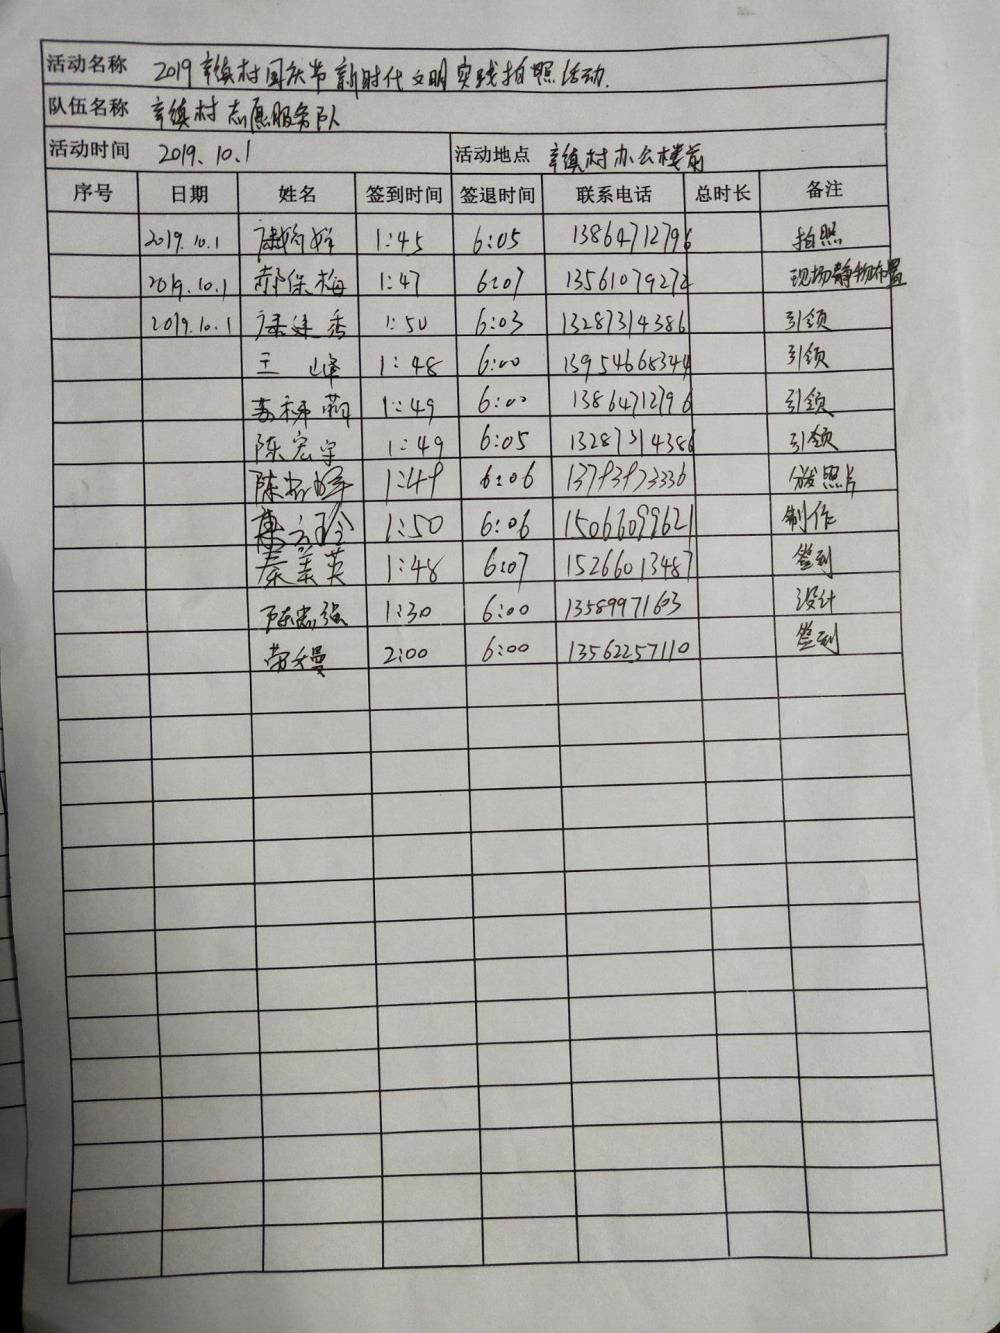 活动名称 2019辛镇村国庆节新时代文明实践拍照活动.
队伍名称 辛镇村志愿服务队
活动时间 2019.10.1 活动地点 辛镇村办公楼前
序号 日期 姓名 签到时间 签退时间 联系电话 总时长 备注
2019.10.1 1:45 6:05 13864712796 拍照
2019.10.1 郝保梅 1:47 6:07 13561079272 现场静物布置
2019.10.1 1:50 6:03 13287314386 引领
王峰 1:48 6:00 13954668344 引领
1:49 6:00 13864712796 引领
陈宏宇 1:49 6:05 13287314386 引领
陈 1:49 6:06 13793973336 分发照片
1:50 6:06 15066099621 制作
秦美英 1:48 6:07 15266013487 签到
陈志强 1:30 6:00 13589971603 设计
2:00 6:00 13562257110 签到